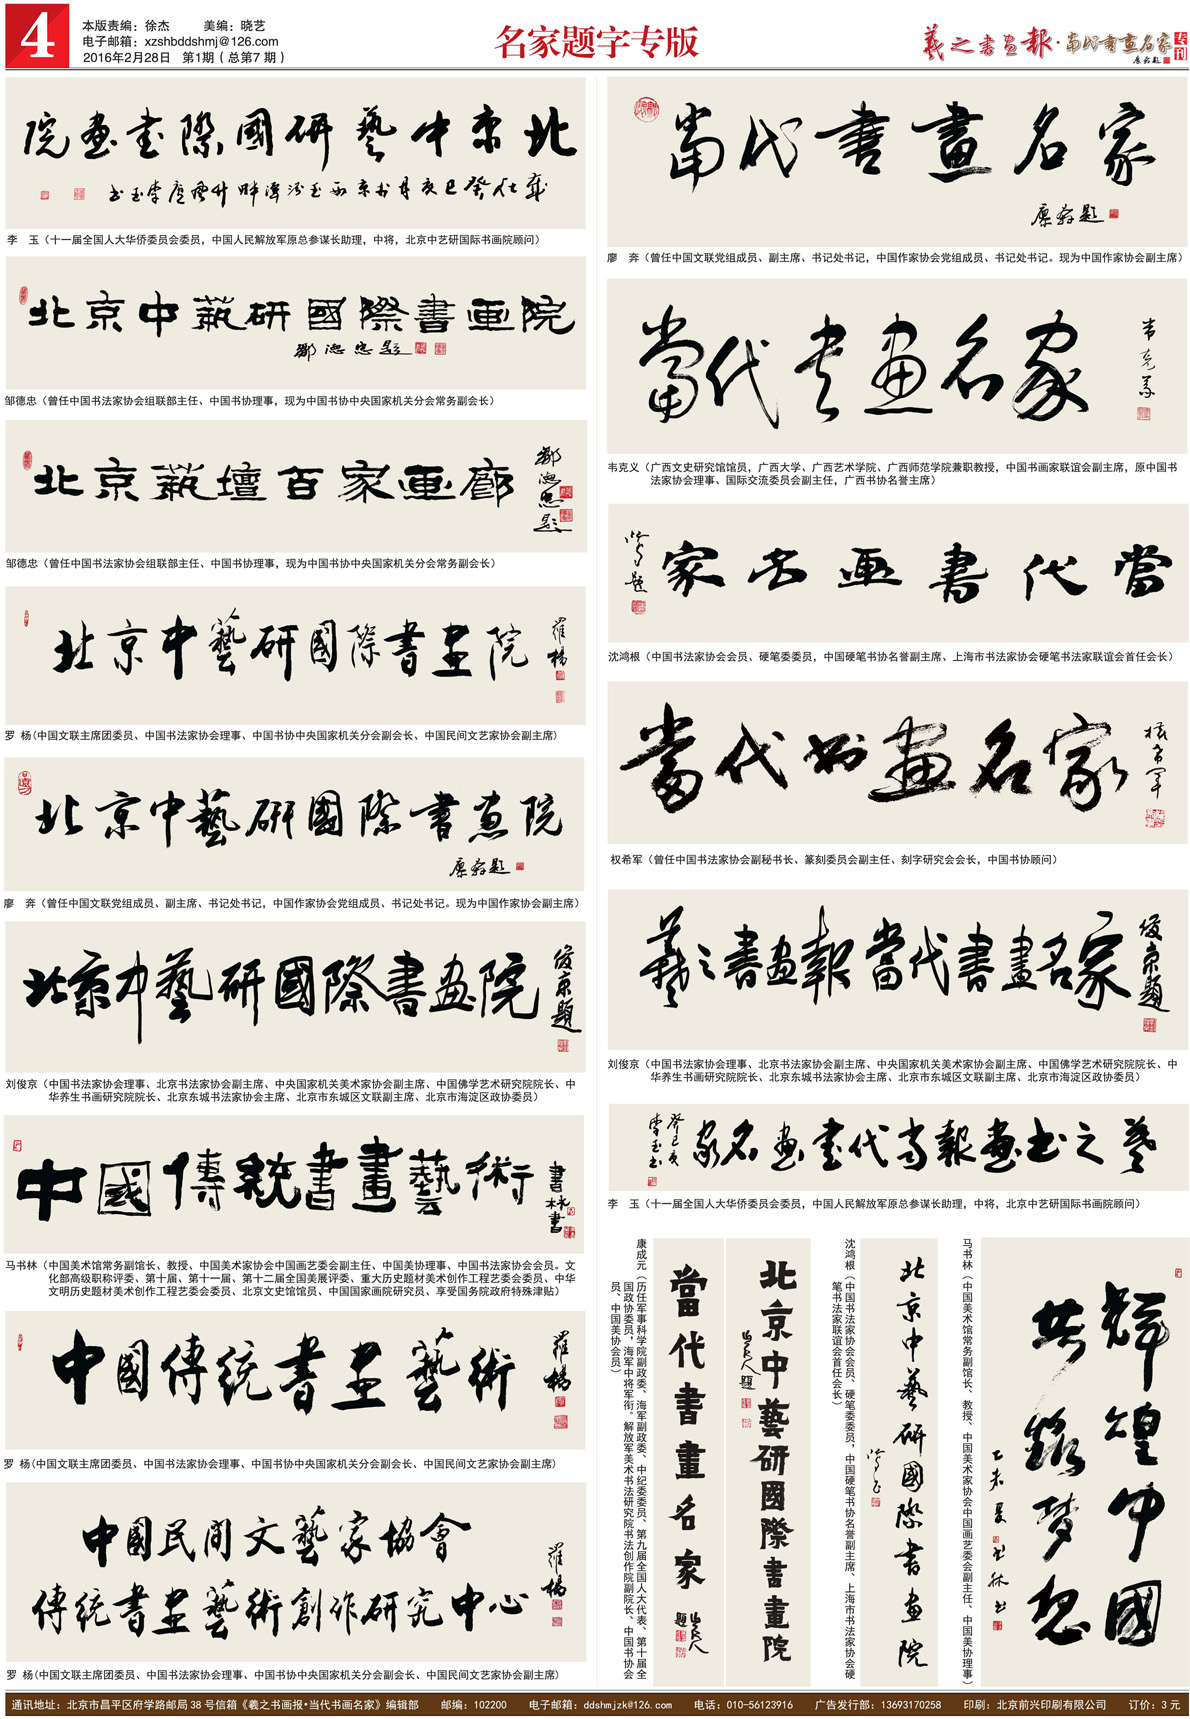 4
本版责编：徐杰 美编：晓艺
电子邮箱：xzshbddshmj@126.com
2016年2月28日 第1期（总第7期）
名家题字专版
羲之書画報·當代書畫名家
专刊
院画書際國研藝中京北
李 玉（十一届全国人大华侨委员会委员，中国人民解放军原总参谋长助理，中将，北京中艺研国际书画院顾问）
北京中藝研國際書画院
邹德忠（曾任中国书法家协会组联部主任、中国书协理事，现为中国书协中央国家机关分会常务副会长）
北京藝壇百家画廊
邹德忠（曾任中国书法家协会组联部主任、中国书协理事，现为中国书协中央国家机关分会常务副会长）
北京中藝研國際書画院
羅楊
罗 杨(中国文联主席团委员、中国书法家协会理事、中国书协中央国家机关分会副会长、中国民间文艺家协会副主席)
北京中藝研國際書画院
廖奔題
廖 奔（曾任中国文联党组成员、副主席、书记处书记，中国作家协会党组成员、书记处书记。现为中国作家协会副主席）
北京中藝研國際書画院
俊京題
刘俊京（中国书法家协会理事、北京书法家协会副主席、中央国家机关美术家协会副主席、中国佛学艺术研究院院长、中
华养生书画研究院院长、北京东城书法家协会主席、北京市东城区文联副主席、北京市海淀区政协委员）
中國傳統書畫藝術
書林書
马书林（中国美术馆常务副馆长、教授、中国美术家协会中国画艺委会副主任、中国美协理事、中国书法家协会会员。文
化部高级职称评委、第十届、第十一届、第十二届全国美展评委、重大历史题材美术创作工程艺委会委员、中华
文明历史题材美术创作工程艺委会委员、北京文史馆馆员、中国国家画院研究员、享受国务院政府特殊津贴）
中國傳統書画藝術
羅楊
罗 杨(中国文联主席团委员、中国书法家协会理事、中国书协中央国家机关分会副会长、中国民间文艺家协会副主席)
中國民间文藝家協會
傳統書画藝術創作研究中心
羅楊
罗 杨(中国文联主席团委员、中国书法家协会理事、中国书协中央国家机关分会副会长、中国民间文艺家协会副主席)
當代書畫名家
廖奔題
廖 奔（曾任中国文联党组成员、副主席、书记处书记，中国作家协会党组成员、书记处书记。现为中国作家协会副主席）
當代书画名家
韦克义
韦克义（广西文史研究馆馆员，广西大学、广西艺术学院、广西师范学院兼职教授，中国书画家联谊会副主席，原中国书
法家协会理事、国际交流委员会副主任，广西书协名誉主席）
家名画書代當
沈鸿根（中国书法家协会会员、硬笔委委员，中国硬笔书协名誉副主席、上海市书法家协会硬笔书法家联谊会首任会长）
當代书畫名家
权希军
权希军（曾任中国书法家协会副秘书长、篆刻委员会副主任、刻字研究会会长，中国书协顾问）
羲之書画報當代書畫名家
俊京題
刘俊京（中国书法家协会理事、北京书法家协会副主席、中央国家机关美术家协会副主席、中国佛学艺术研究院院长、中
华养生书画研究院院长、北京东城书法家协会主席、北京市东城区文联副主席、北京市海淀区政协委员）
家名画書代当報画书之羲
李 玉（十一届全国人大华侨委员会委员，中国人民解放军原总参谋长助理，中将，北京中艺研国际书画院顾问）
康成元（历任军事科学院副政委、海军副政委、中纪委委员、第九届全国人大代表、第十届全
国政协委员，海军中将军衔。解放军美术书法研究院书法创作院副院长、中国书协会
员、中国美协会员）
當代書畫名家
北京中藝研國際書畫院
沈鸿根（中国书法家协会会员、硬笔委委员，中国硬笔书协名誉副主席、上海市书法家协会硬
笔书法家联谊会首任会长）
北京中藝研國際書画院
马书林（中国美术馆常务副馆长、教授、中国美术家协会中国画艺委会副主任、中国美协理事）
輝煌中國
共铸梦想
乙未夏書林书
通讯地址：北京市昌平区府学路邮局38号信箱《羲之书画报•当代书画名家》编辑部 邮编：102200 电子邮箱：ddshmjzk@126.com 电话：010-56123916 广告发行部：13693170258 印刷：北京前兴印刷有限公司 订价：3元